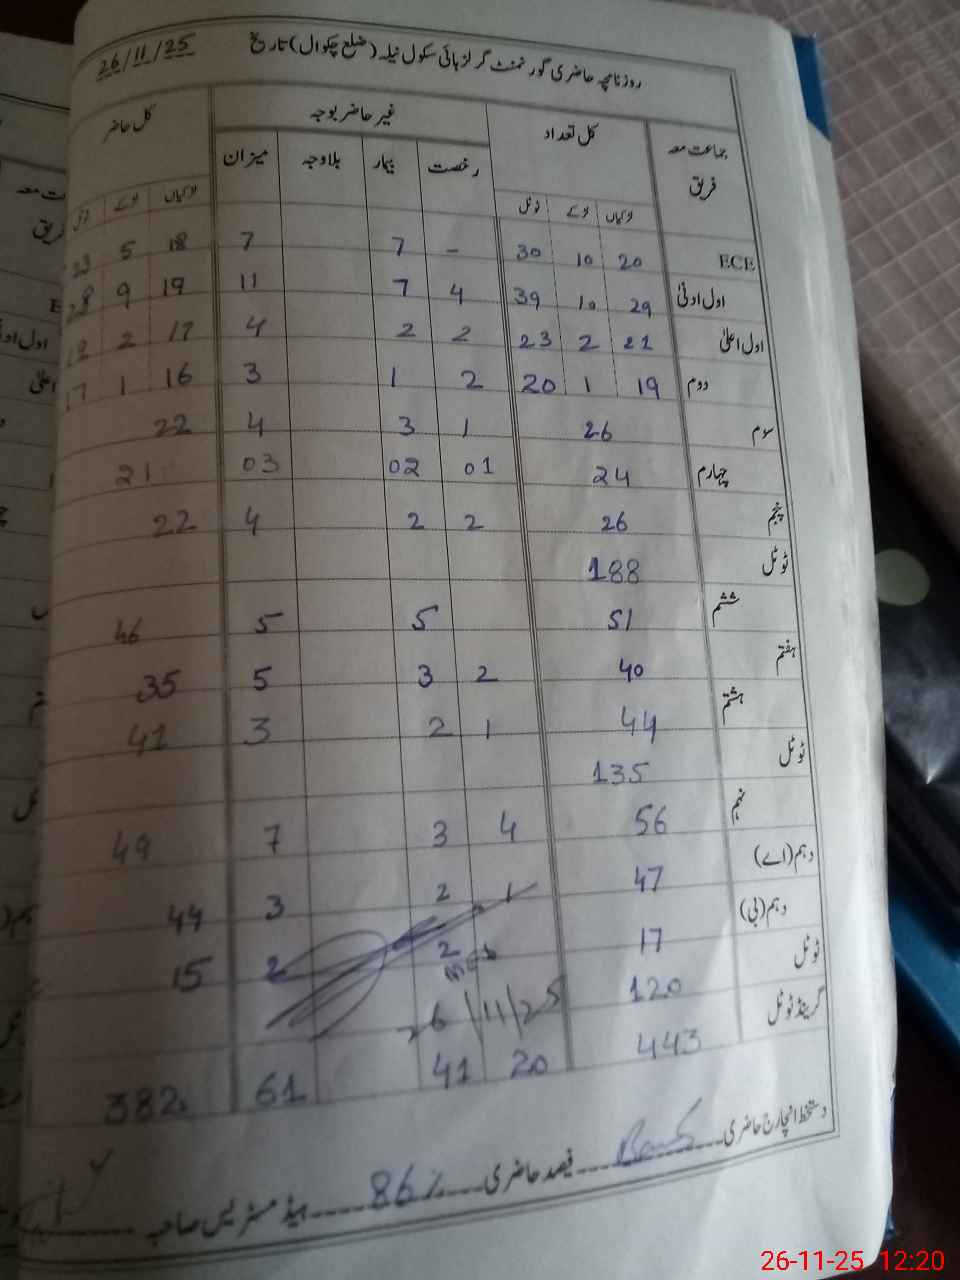 روزنامچہ حاضری گورنمنٹ گرلز ہائی سکول نیلہ (ضلع چکوال) تاریخ 26/11/25
جماعت معہ فریق کل تعداد غیر حاضر بوجہ کل حاضر
رخصت بیمار بلاوجہ میزان
لڑکیاں لڑکے ٹوٹل لڑکیاں لڑکے ٹوٹل
ECE 20 10 30 - 7 7 18 5 23
اول ادنیٰ 29 10 39 4 7 11 19 9 28
اول اعلیٰ 21 2 23 2 2 4 17 2 19
دوم 19 1 20 2 1 3 16 1 17
سوم 26 1 3 4 22
چہارم 24 01 02 03 21
پنجم 26 2 2 4 22
ٹوٹل 188
ششم 51 5 5 46
ہفتم 40 2 3 5 35
ہشتم 44 1 2 3 41
ٹوٹل 135
نہم 56 4 3 7 49
دہم (اے) 47 1 2 3 44
دہم (بی) 17 2 2 15
ٹوٹل 120
26/11/25
گرینڈ ٹوٹل 443 20 41 61 382
دستخط انچارج حاضری فیصد حاضری 86% ہیڈ مسٹریس صاحبہ
26-11-25 12:20